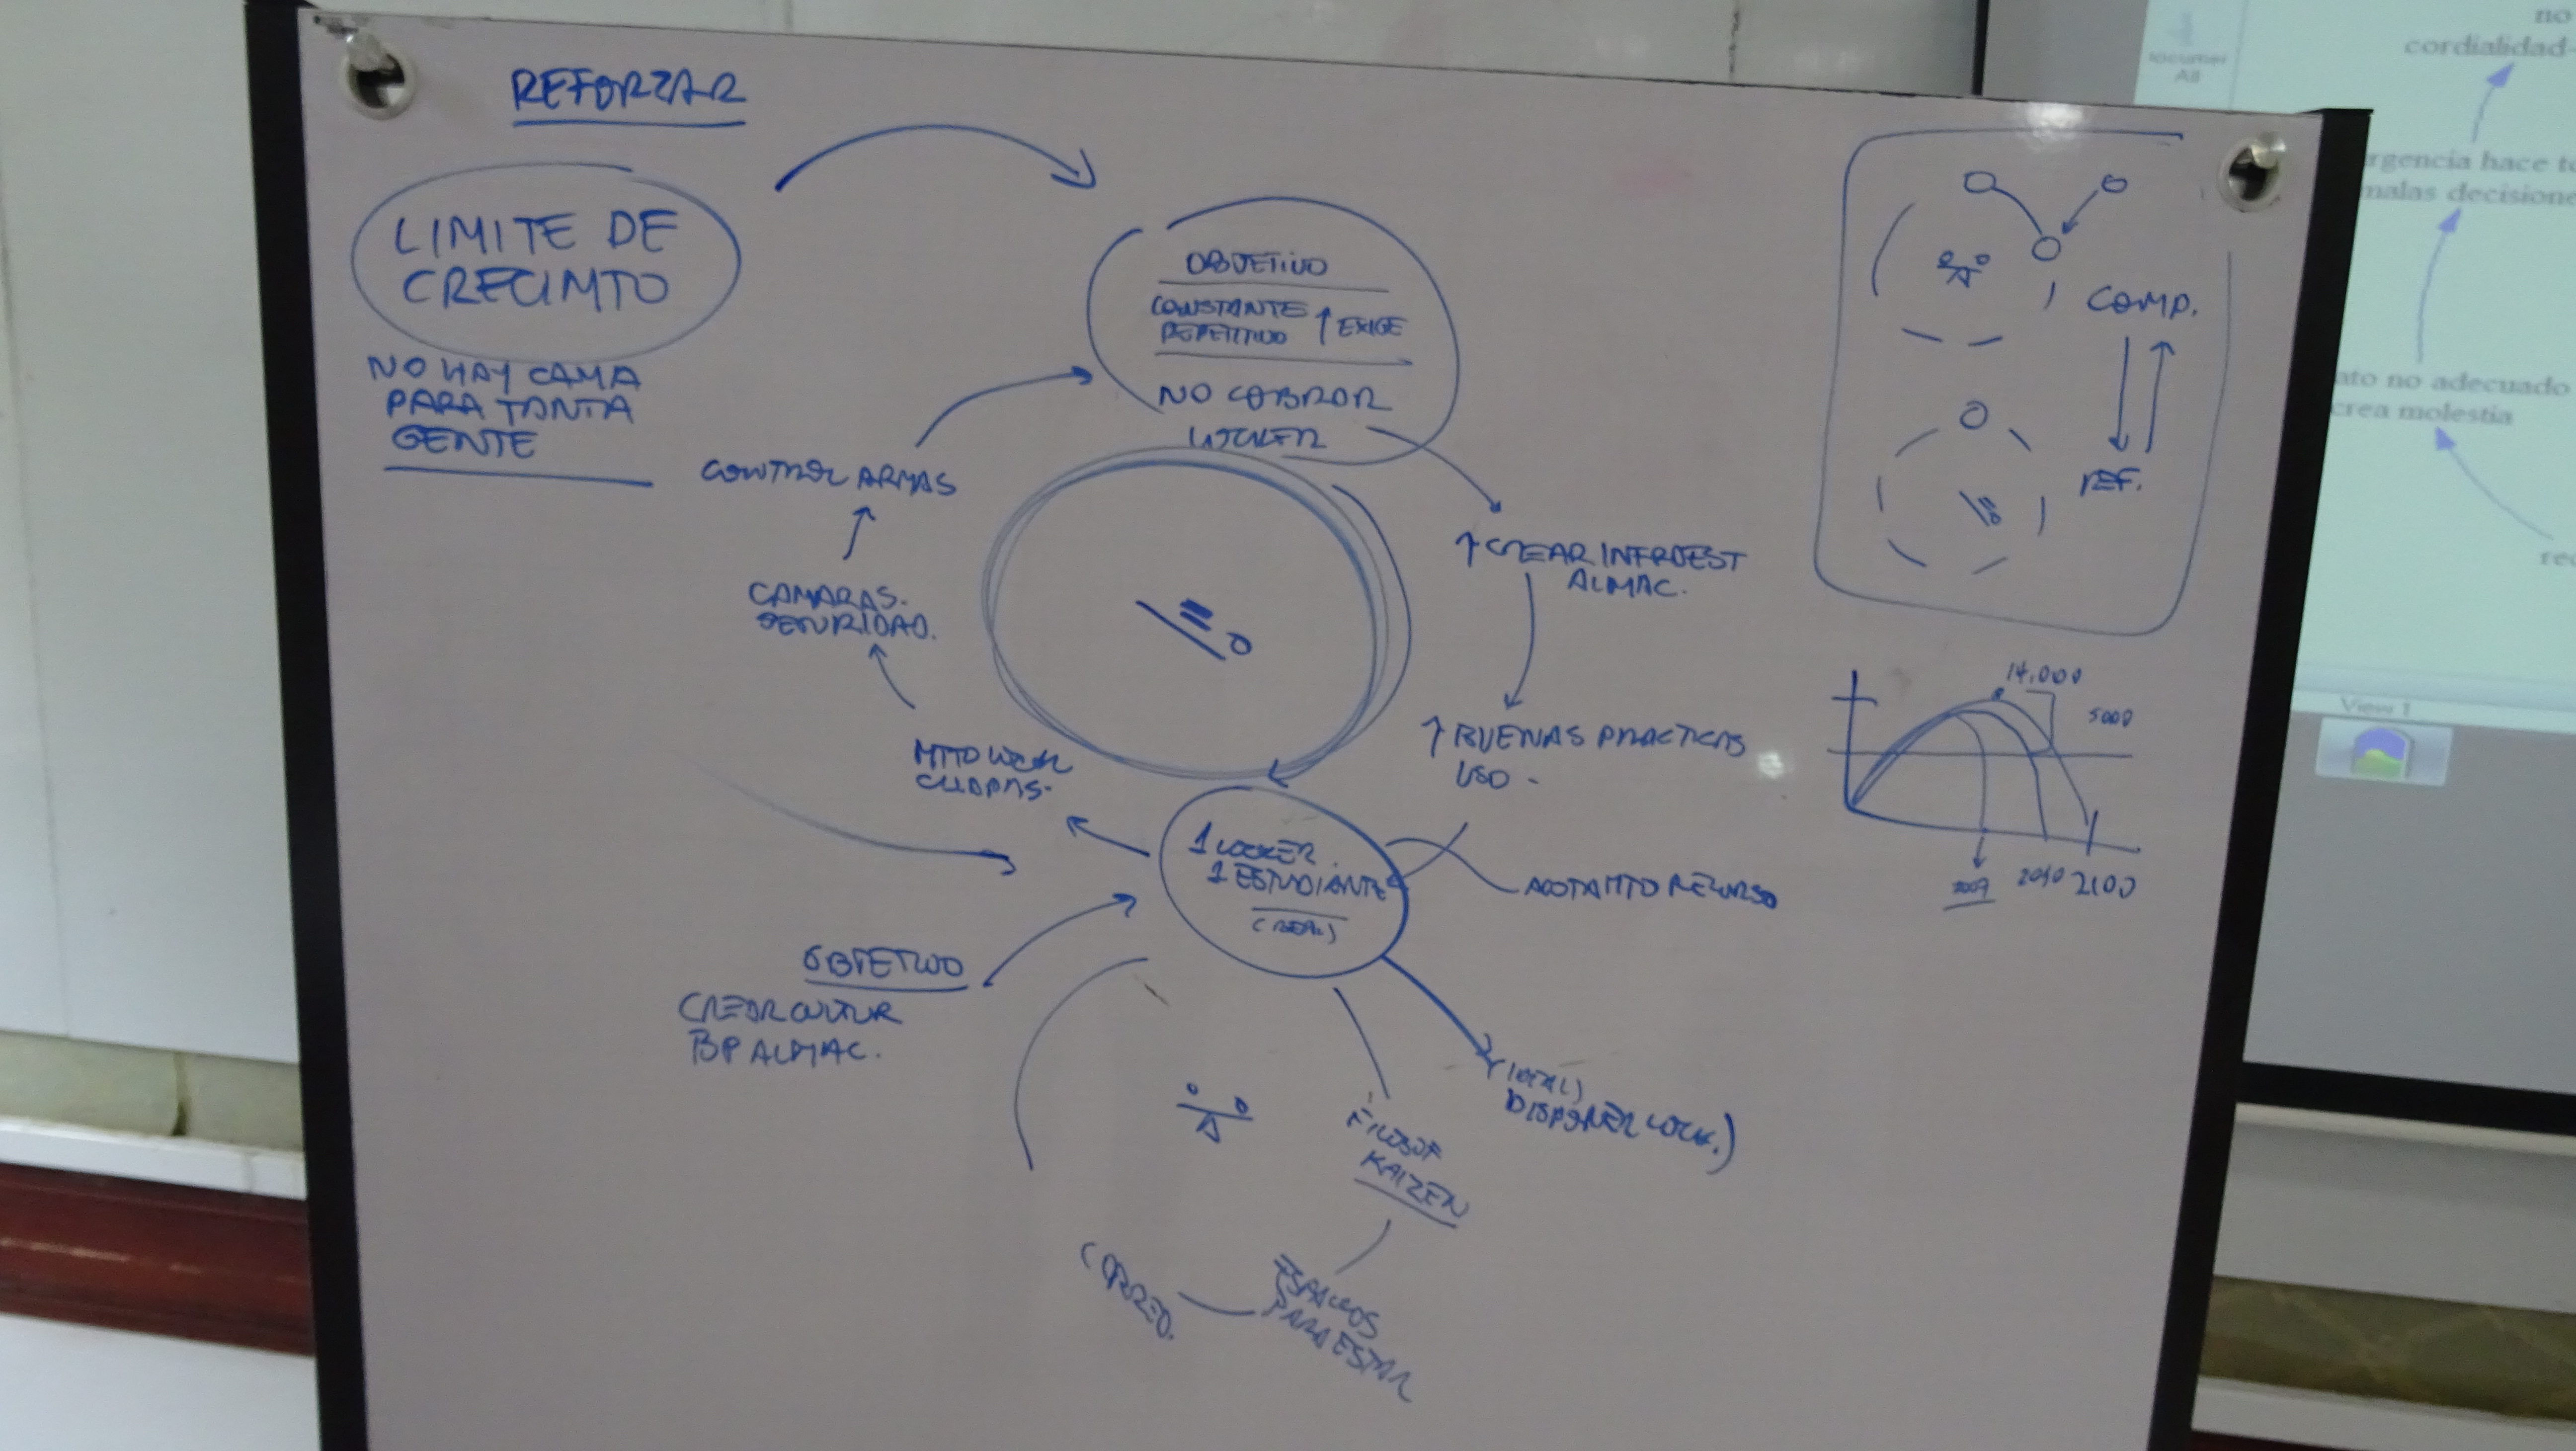 REFORZAR
LIMITE DE
CRECIMTO
NO HAY CAMA
PARA TANTA
GENTE
OBJETIVO
CONSTANTE
REPETITIVO
↑ EXIGE
NO COBRAR
LOCKER
CONTROL ARMAS
CAMARAS.
SEGURIDAD.
MTTO LOCK
CHAPAS.
↑ CREAR INFRAEST
ALMAC.
↑ BUENAS PRACTICAS
USO -
1 LOCKER.
1 ESTUDIANTE
(REAL)
AGOTAMTO RECURSO
OBJETIVO
CREAR CULTUR
BP ALMAC.
(IDEAL)
DISPONER LOCK.)
FILOSOF
KAIZEN
ESPACIOS
PARA ESTAR
CORREO.
COMP.
REF.
14.000
5000
2009
2040
2100
no
cordialidad
rgencia hace t
malas decisione
ato no adecuado
crea molestia
rec
All
View 1